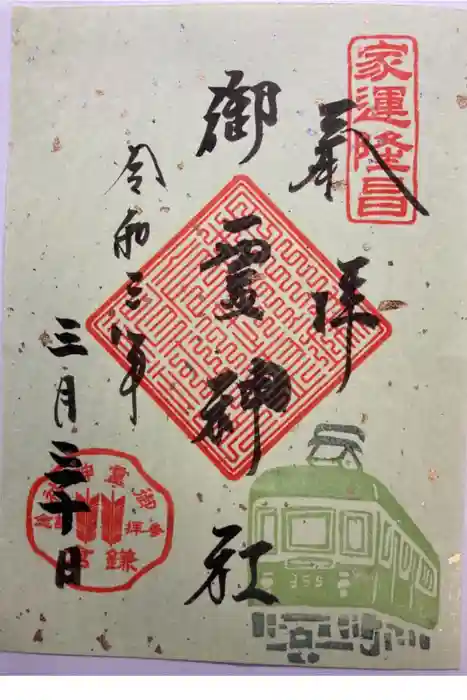 家運隆昌
奉拝
御霊神社
令和三年
三月三十日
御靈神社
参拝
記念
鎌倉
355